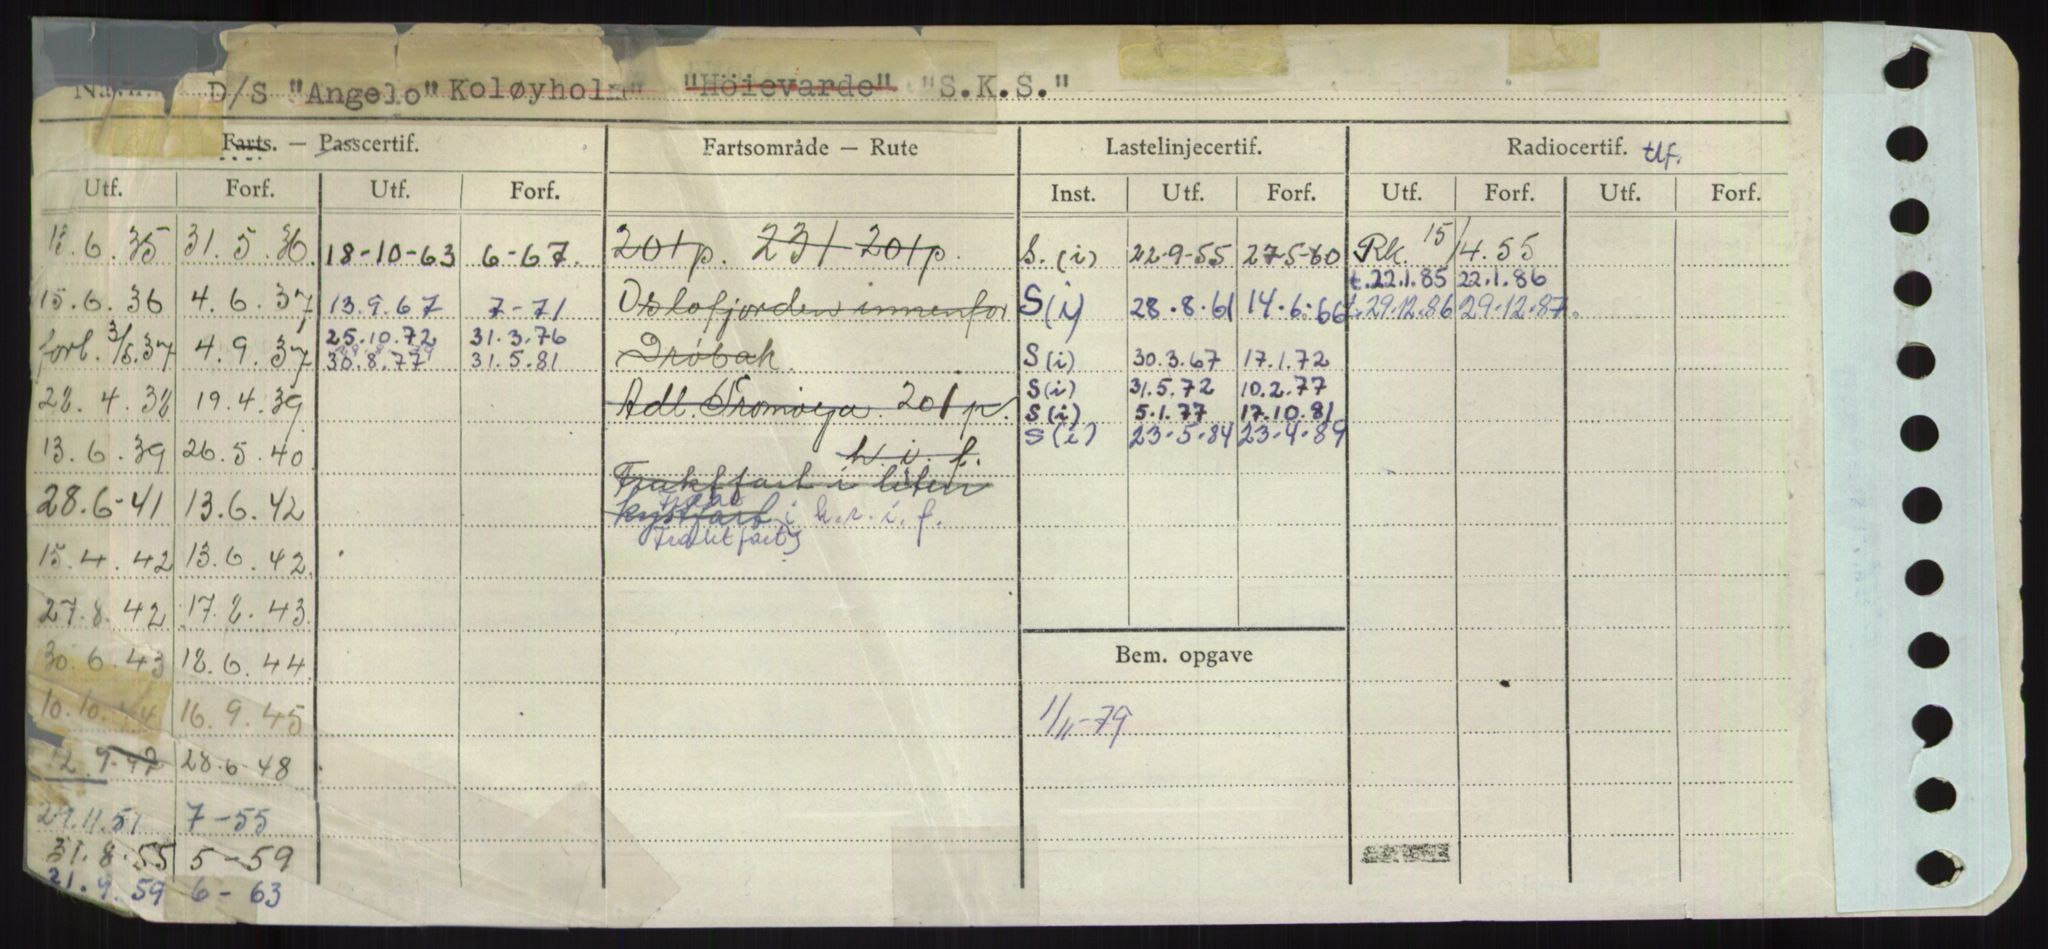 Navn D/S "Angelo" Koløyholm" "Höievarde" "S.K.S."
Farts. — Passcertif. Fartsområde — Rute Lastelinjecertif. Radiocertif. tlf.
Utf. Forf. Utf. Forf. Inst. Utf. Forf. Utf. Forf. Utf. Forf.
6. 35 31. 5. 36 18-10-63 6-67. 201 p. 231 201 p. S. (i) 22-9-55 27-5-60 Rk. 15/4. 55
t. 22.1.85 22.1.86
15. 6. 36 4. 6. 37 13.9.67 7-71 Oslofjorden innenfor S (i) 28.8.61 14.6.66 t. 29.12.86 29-12-87.
25.10.72 31.3.76
forl. 3/6.37 4. 9. 37 30.8.77 31.5.81 Drøbak. S (i) 30.3.67 17.1.72
S (i) 31.5.72 10.2.77
22. 4. 38 19. 4. 39 Adl. Tromøya. 201 p. S (i) 5.1.77 17.10.81
S (i) 23-5-84 23-4-89
13. 6. 39 26. 5. 40 k. i. f.
Fraktfart i liten
28.6-41 13. 6. 42 kystfart i k. r. i. f.
Fraktfart
15. 4. 42 13. 6. 42
27. 8. 42 17. 8. 43
30. 6. 43 18. 6. 44 Bem. opgave
10. 10. 44 16. 9. 45 1/11-79
12. 9. 47 28. 6. 48
29.11.51 7-55
31.8.55 5-59
21.9.59 6-63